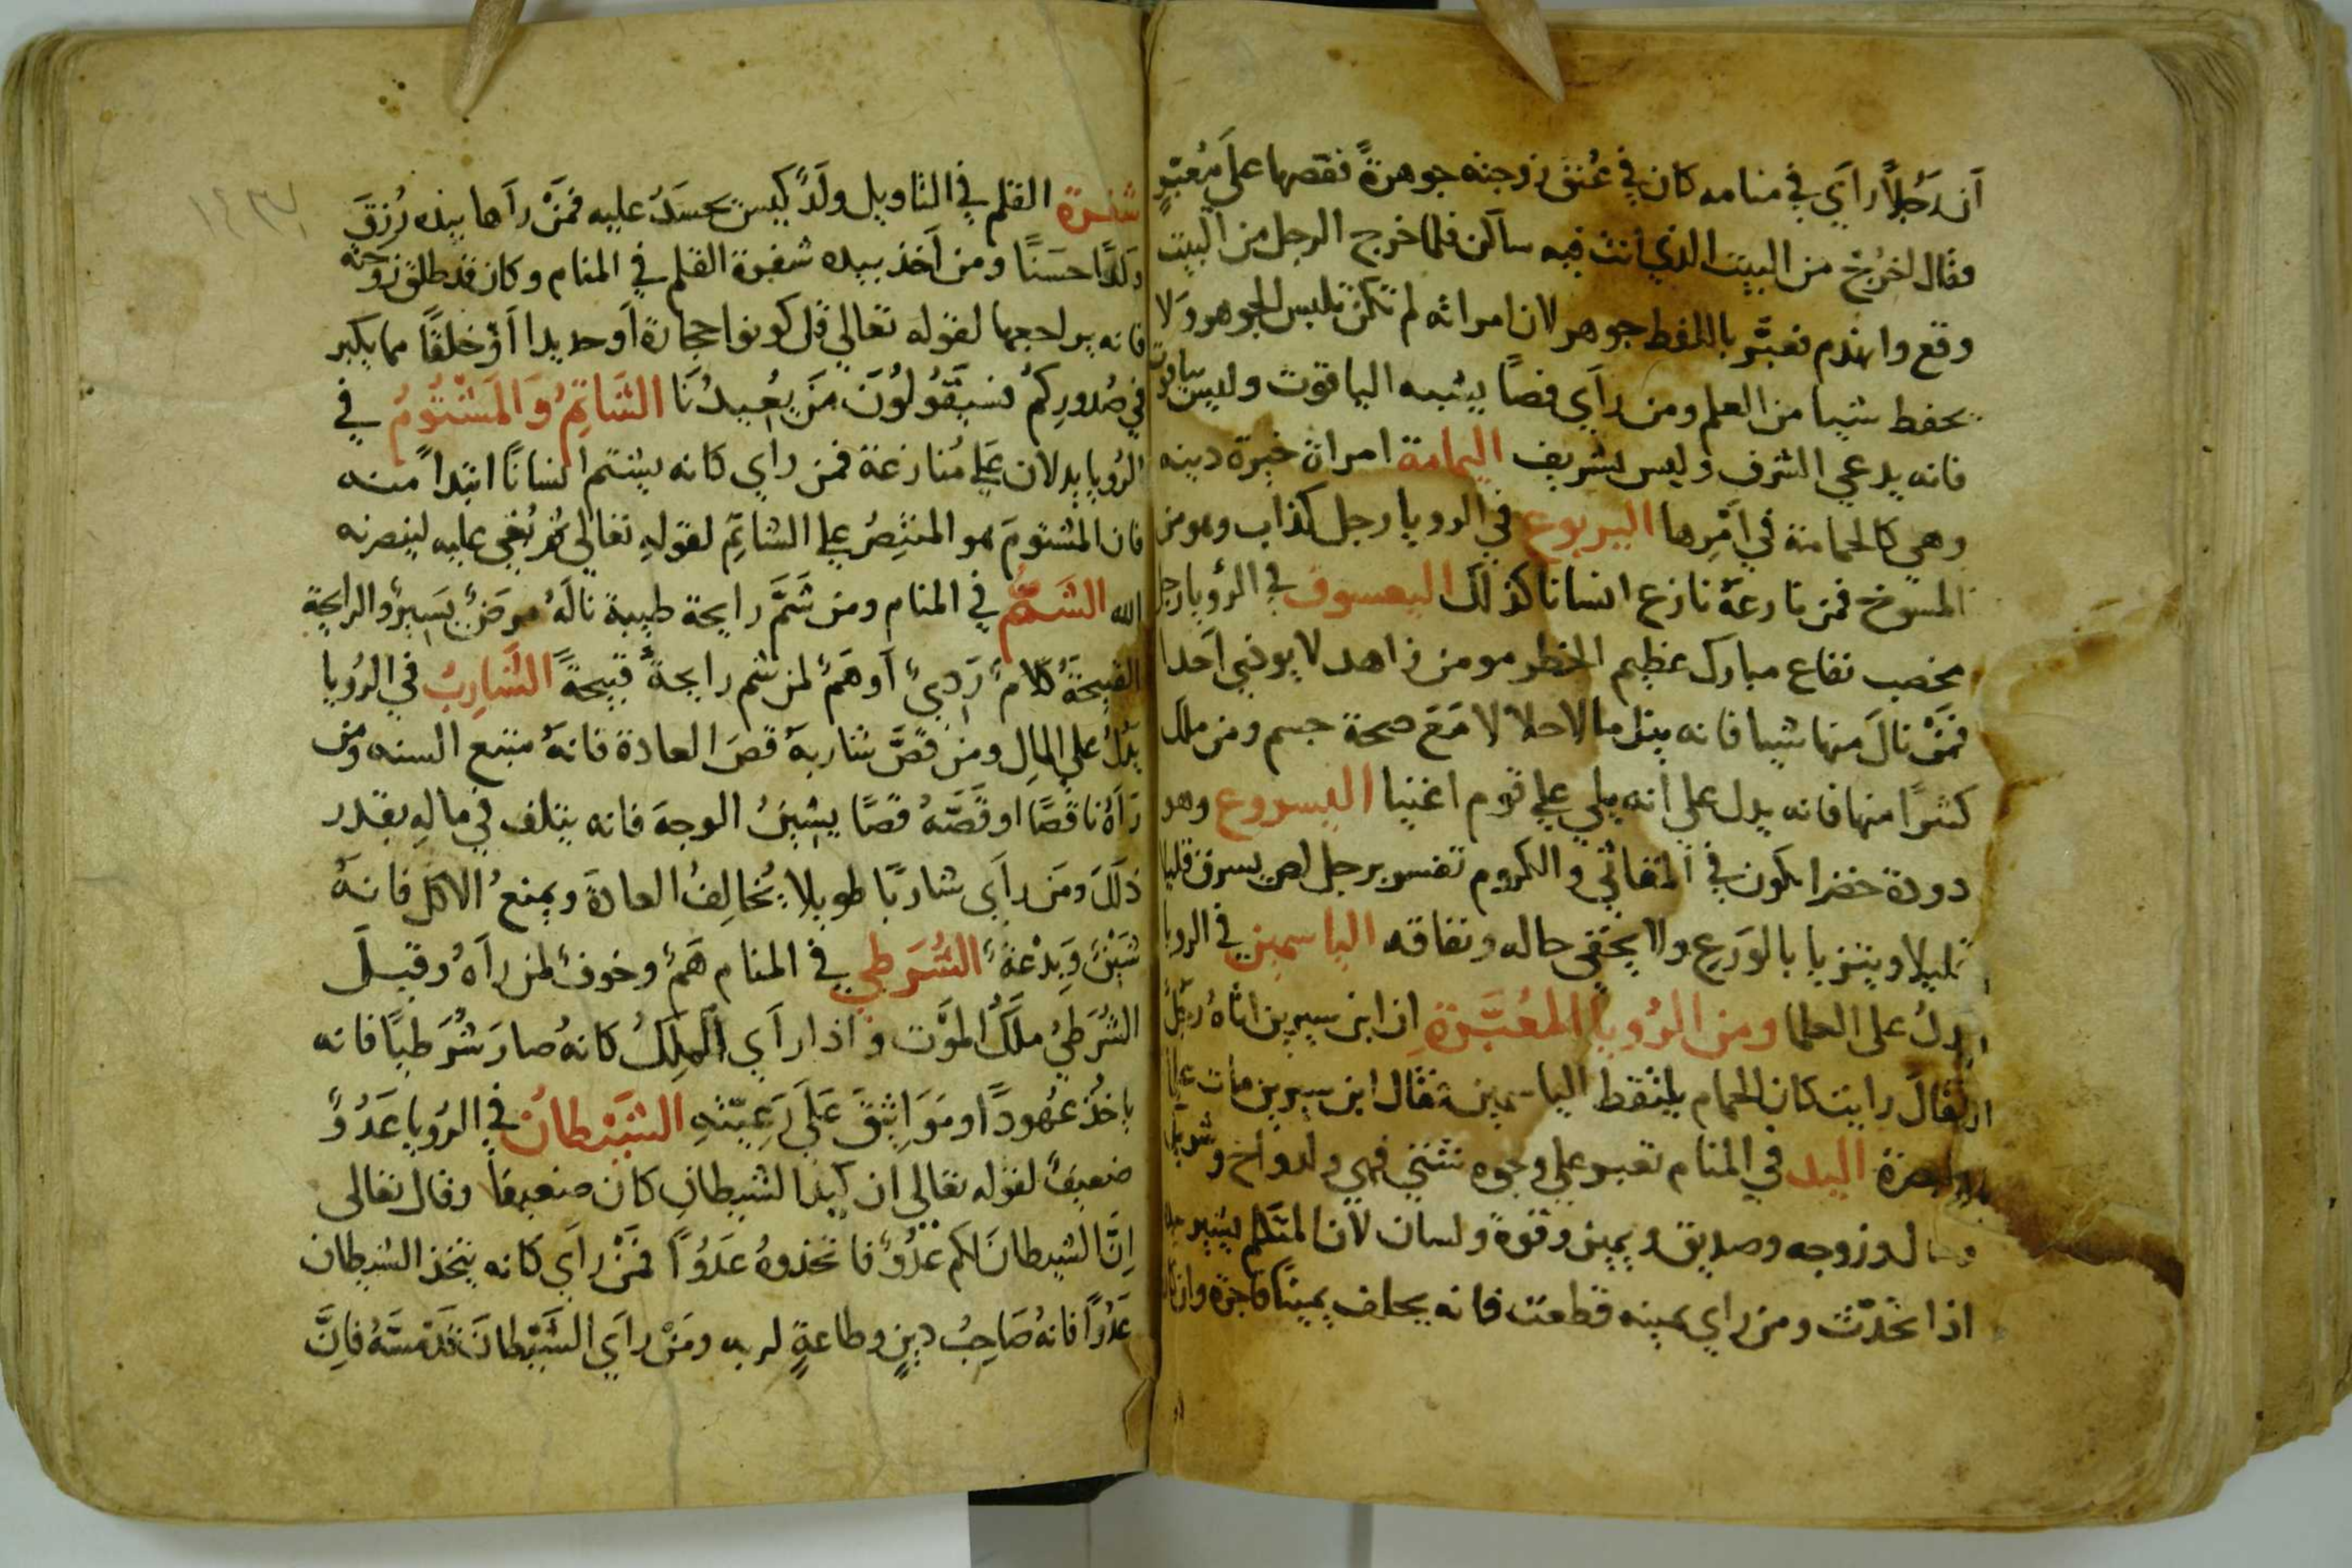 أن رَجُلاً رأَي في منامه كان في عُنق زوجته جوهرةً فقصها علَى مُعبّرٍ
فقال اخرُجْ من البيت الذي انت فيه ساكن فلما خرج الرجل من البيت
وقع وانهدم فعبَّر باللفظ جوهر لان امراته لم تكن تلبس الجوهر ولا
تحفظ شيا من العلم ومن رأَي فصاً يشبه الياقوت وليس بياقوت
فانه يدعي الشرف وليس بشريف اليمامة امراة خيرة دينه
وهي كالحمامة في أمرها اليربوع في الرويا رجل كذاب وهو من
المسوخ فمن نازعهُ نازع انسانا كذلك اليعسوف في الرؤيا رجل
مخصب نفاع مبارك عظيم الخطر مومن زاهد لا يوذي أحدا
فمَنْ نالَ منها شيا فانه ينل مالا حلالا مَعَ صحة جسم ومن ملك
كثيرًا منها فانه يدل علي انه يلي علي قوم اغنيا اليسروع وهو
دودة خضرا يكون في المقاثي والكروم تفسر برجل لص يسرق قليلا
قليلا ويتزيا بالورع ولا يخفي حاله ونفاقه الياسمين في الرويا
يدلُ على العلما ومن الرُويا المعُبَّرةِ ان ابن سيرين اتاهُ رجلٌ
فقالَ رايت كان الحمام يلتقط الياسمين فقال ابن سيرين مات علما
البصرة اليد في المنام تعبر علي وجوه شتي فهي ولد واخ وشريك
ومال وزوجه وصديق ويمين وقوة ولسان لأن المتكلم يشير بيده
اذا تحَدّث ومن راي يمينه قطعت فانه يحلف يمينًا فاجرة وان كان
شفرة القلم في التاويل ولَدٌ كيس يحسَدُ عليه فمَنْ رأَها بيده رُزقَ
ولدًا حسَنًا ومن أخذ بيده شفرة القلم في المنام وكان قد طلق زوجته
فانه يراجعها لقوله تعالي قل كونوا حجارةً أو حديدا أوْ خلقًا مما يكبر
في صُدوركمْ فسيَقُولُونَ مَنَ يُعِيدُنَا الشَاتِمُ وَالمَشْتُومُ في
الرُويا يدلان عَلي مُنازعة فمن راي كانه يشتم انسانًا ابتداً منه
فان المشتومَ هو المنتصِرُ علي الشاتِمِ لقولهِ تعالي ثم بُغي عليه لينصرنه
الله الشَّمُّ في المنام ومن شَمَّ رايحة طيبة نالَهُ مرضٌ يسَيرٌ والرايحة
القبيحَةُ كلامٌ رَديٌ أو هَمٌ لمن شم رايحةً قبيحةً الشَارِبُ في الرُويا
يدُلُ علي المالِ ومن قَصَّ شاربهُ قصَ العادة فانهُ متبع السنه ومن
رَآهُ ناقصًا او قَصَّهُ قصًا يشينُ الوجهَ فانه يتلف في مالهِ بقدر
ذلكَ ومَن راَي شاربًا طويلا يُخالِفُ العادةَ ويمنعُ الاكلَ فانهُ
شَيْنٌ وَبِدْعَةٌ الشُرَطي في المنام هَمٌ وخوفٌ لمن رآهُ وقيلَ
الشُرَطيُ ملَكُ المَوْت واذا رأَي المَلِكُ كانهُ صارَ شُرَطيًا فانه
ياخُذُ عهُودًا ومَوَاثِيقَ عَلَي رَعِيّتهِ الشَيْطانُ في الرُويا عَدُوٌ
ضعيفٌ لقوله تعالي ان كيدا لشيطانِ كان ضعيفاً وقال تعالى
اِنَّ الشيطانَ لكم عدُوٌ فاتخذوهُ عَدُوًا فمَنْ رأي كانه يتخذ الشيطان
عَدُوًا فانهُ صَاحِبُ دينٍ وطاعةٍ لربه ومَنْ رأَي الشَيْطانَ قدْ مسَّهُ فاِنَّ